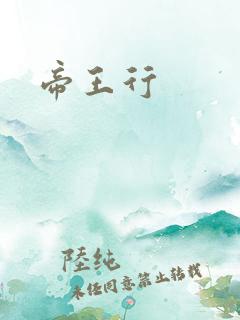 帝王行
陸纯
未经同意禁止转载